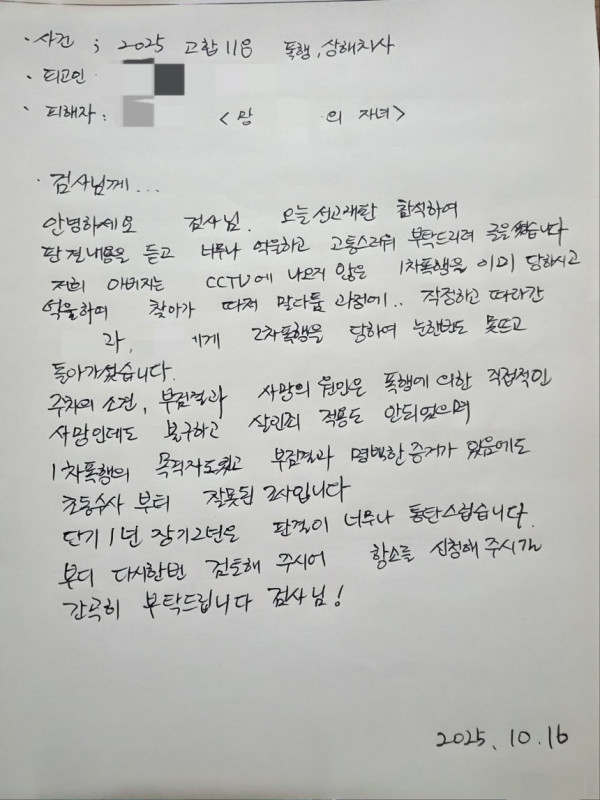 · 사건 ; 2025 고합 118 폭행, 상해치사
· 피고인
· 피해자 : < 망 의 자녀>
· 검사님께...
안녕하세요 검사님. 오늘 선고재판 참석하여
판결내용을 듣고 너무나 억울하고 고통스러워 부탁드리려 글을 썼습니다
저희 아버지는 CCTV에 나오지 않은 1차폭행을 이미 당하시고
억울하여 찾아가 따져 말다툼 과정에.. 작정하고 따라간
과, 에게 2차폭행을 당하여 눈한번도 못뜨고
돌아가셨습니다.
주치의 소견, 부검결과 사망의 원인은 폭행에 의한 직접적인
사망인데도 불구하고 살인죄 적용도 안되었으며
1차폭행의 목격자도있고 부검결과 명백한 증거가 있음에도
초동수사 부터 잘못된 조사입니다
단기 1년 장기2년은 판결이 너무나 통탄스럽습니다.
부디 다시한번 검토해 주시어 항소를 신청해 주시길
간곡히 부탁드립니다 검사님!
2025. 10. 16